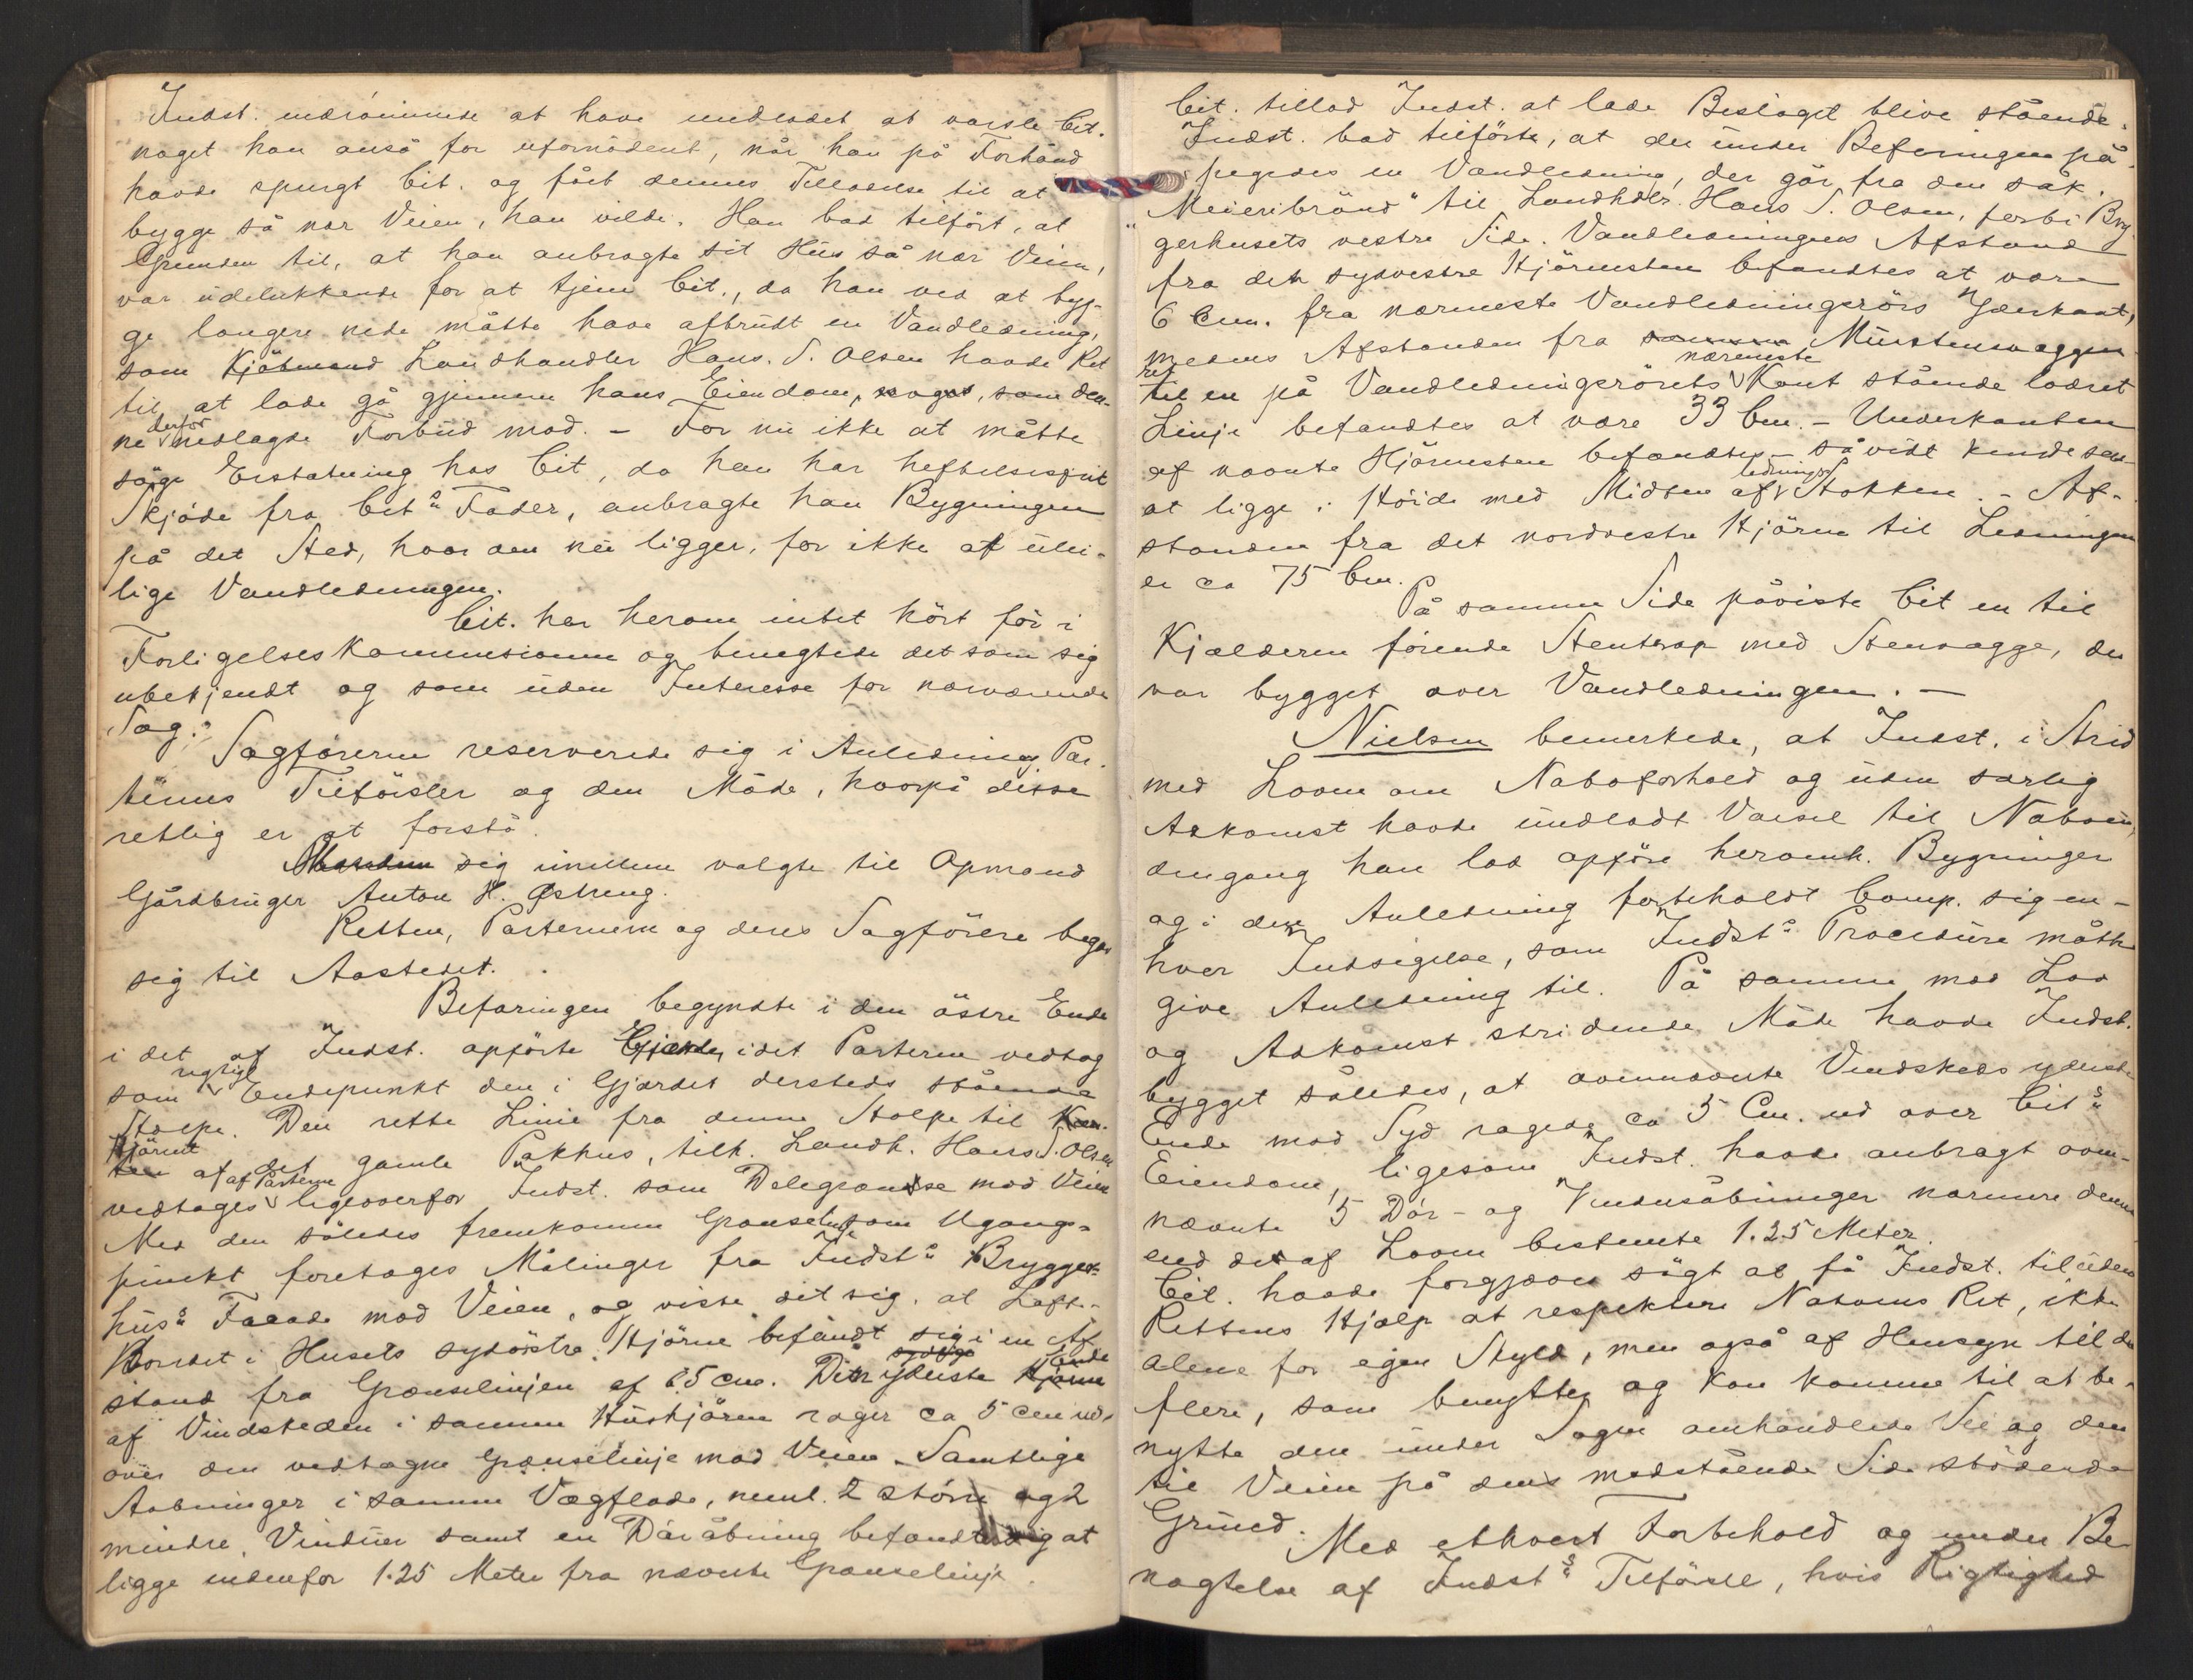 Indst. indrömmede at have undladt at varsle Cit.
noget han anså for ufornödent, når han på Forhånd
havde spurgt Cit. og fået dennes Tilladelse til at
bygge så nær Veien, han vilde. Han bad tilfört, at
Grunden til, at han anbragte sit Hus så nær Veien,
var udelukkende for at tjene Cit., da han ved at byg-
ge længere nede måtte have afbrudt en Vandledning,
som Kjöbmand Landhandler Hans S. Olsen havde Ret
til at lade gå gjennem hans Eiendom, noget, som den-
ne derfor nedlagde Forbud mod. - For nu ikke at måtte
söge Erstatning hos Cit, da han har heftelsesfrit
Skjöde fra Cit.s Fader, anbragte han Bygningen
på det Sted, hvor den nu ligger, for ikke at ulei-
lige Vandledningen.
Cit. har herom intet hört för i
Forligelseskommisionen og benegtede det som sig
ubekjendt og som uden Interesse for nærværende
Sag.
Sagförerne reserverede sig i Anledning Par-
ternes Tilförsler og den Måde, hvorpå disse
retlig er at forstå.
Mændene sig imellem valgte til Opmand
Gårdbruger Anton H. Østreng.
Retten, Parterne og deres Sagförere begav
sig til Aastedet.
Befaringen begyndte i den östre Ende
i det af Indst. opförte Gjærde, idet Parterne vedtog
som rigtigt Endepunkt den i Gjærdet dersteds stående
Stolpe. Den rette Linie fra denne Stolpe til Kan-
ten Hjörnet af det gamle Pakhus, tilh. Landh. Hans S. Olsen
vedtages af Parterne ligeoverfor Indst. som Delegrændse mod Veien
Med den således fremkomne Grænselinje som Udgangs-
punkt foretages Målinger fra Indst.s Brygger-
hus's Facade mod Veien, og viste det sig, at Loft-
Bordet i Husets sydöstre Hjörne befandt sig i en Af-
stand fra Grænselinjen af 65 cm. Den yderste sydlige Hjörne Ende
af Vindskeden i samme Hushjörne rager ca 5 cm ud
over den vedtagne Grænselinje mod Veien. Samtlige
Aabninger i samme Vægflade, neml. 2 större og 2
mindre Vinduer samt en Döråbning befandtes sig at
ligge indenfor 1.25 Meter fra nævnte Grænselinje.
Cit. tillod Indst. at lade Beslaget blive stående.
Indst. bad tilförte, at der under Befaringen på-
pegedes en Vandledning, der går fra den såk.
"Meieribrönd" til Landhdlr. Hans S. Olsen, forbi Bryg-
gerhusets vestre Side. Vandledningens Afstand
fra den sydvestre Hjörnesten befandtes at være
6 Cm. fra nærmeste Vandledningsrörs Yderkant,
medens Afstanden fra samme Murstensvæggen
ret til en på Vandledningsrörets nærmeste Kant stående lodret
Linje befandtes at være 33 Cm. - Underkanten
af nævnte Hjörnesten befandtes - såvidt kunde sees
at ligge i Höide med Midten af Ledningsstokken. - Af-
standen fra det nordvestre Hjörne til Ledningen
er ca 75 Cm.
På samme Side påviste Cit en til
Kjælderen förende Stentrap med Stenvægge, der
var bygget over Vandledningen. -
Nielsen bemerkede, at Indst. i Strid
med Loven om Naboforhold og uden særlig
Adkomst havde undladt Varsel til Naboen,
dengang han lod opföre heromh. Bygninger
og i den Anledning forbeholdt Comp. sig en-
hver Indsigelse, som Indst.s Procedure måtte
give Anledning til. På samme mod Lov
og Adkomst stridende Måde havde Indst.
bygget således, at ovennævnte Vindskeds yderste
Ende mod Syd ragede ca 5 Cm. ud over Cit.s
Eiendom, ligesom Indst. havde anbragt oven-
nævnte 5 Dör- og Vindusåbninger nærmere denne
end det af Loven bestemte 1.25 Meter.
Cit. havde forgjæves sögt at få Indst. til uden
Rettens Hjælp at respektere Naboens Ret, ikke
alene for egen Skyld, men også af Hensyn til de
flere, som benytter og kan komme til at be-
nytte den under Sagen omhandlede Vei og den
til Veien på dens modstående Side stödende
Grund.
Med ethvert Forbehold og under Be-
nægtelse af Indst.s Tilförsel, hvis Rigtighed